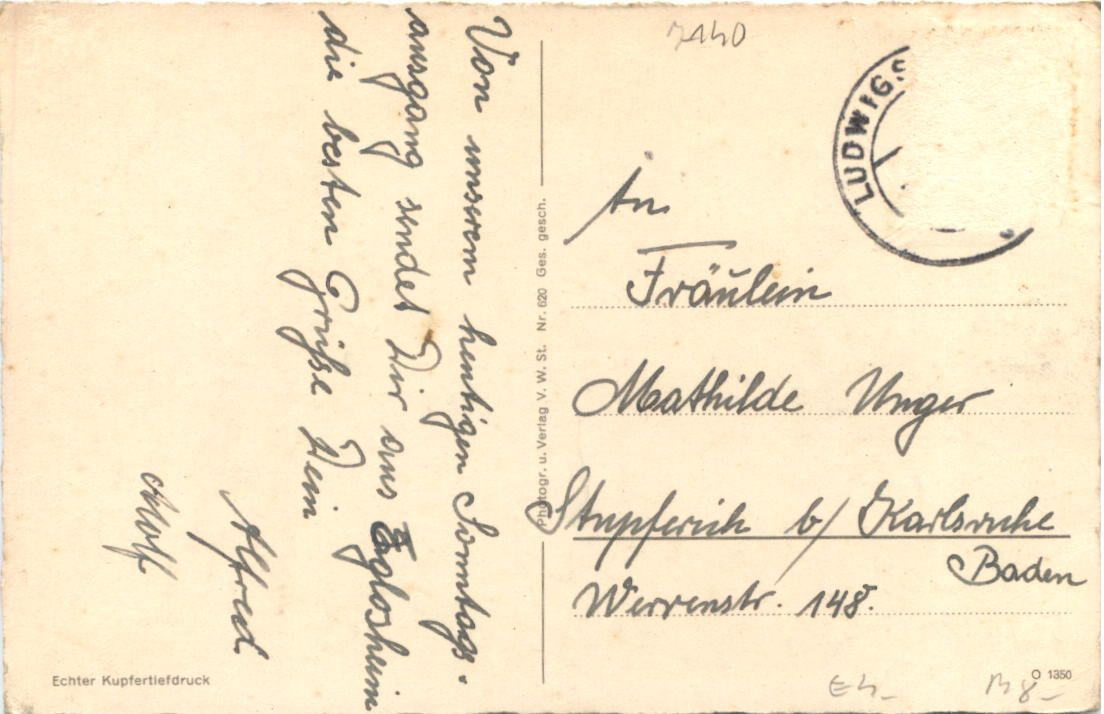 Von unserem heutigen Sonntags-
ausgang sendet Dir aus Eglosheim
die besten Grüße Dein
Alfred
Adolf
7140
LUDWIGS
An
Fräulein
Mathilde Unger
Stupferich b/ Karlsruhe
Baden
Werrenstr. 148.
Photogr. u. Verlag V. W. St. Nr. 620 Ges. gesch.
Echter Kupfertiefdruck
O 1350